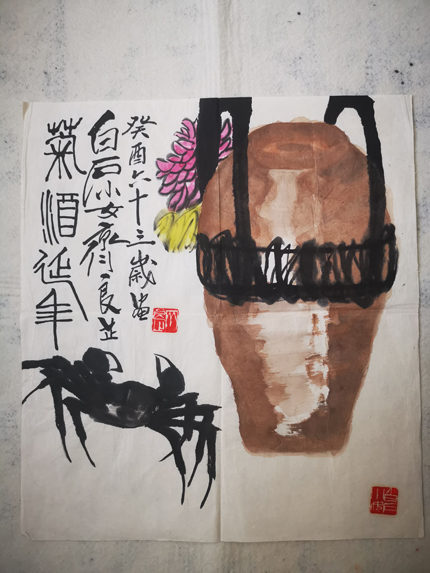 菊酒延年
白石小女齊良芷
癸酉六十三歲畫